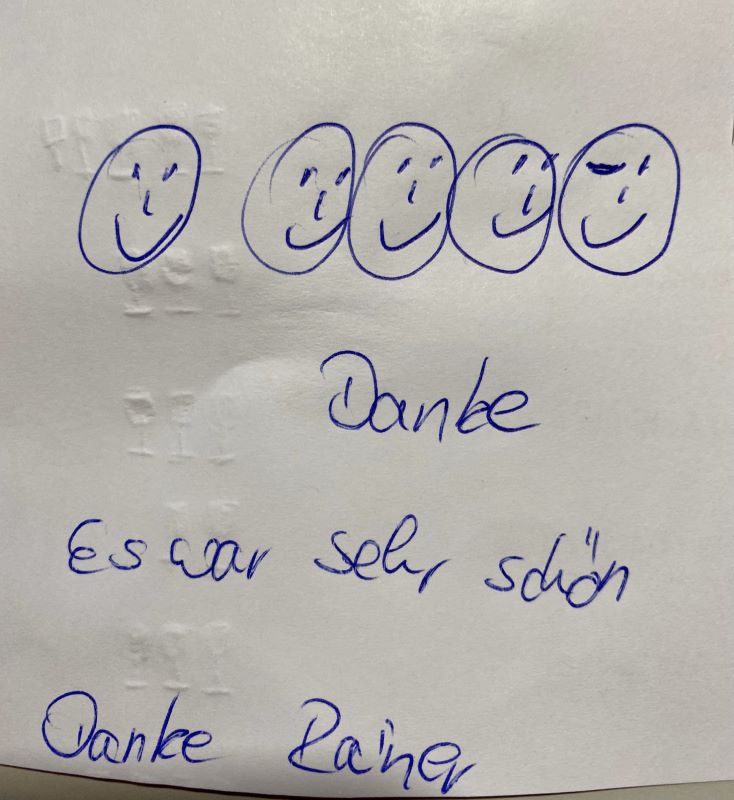 Danke
Es war sehr schön
Danke Rainer